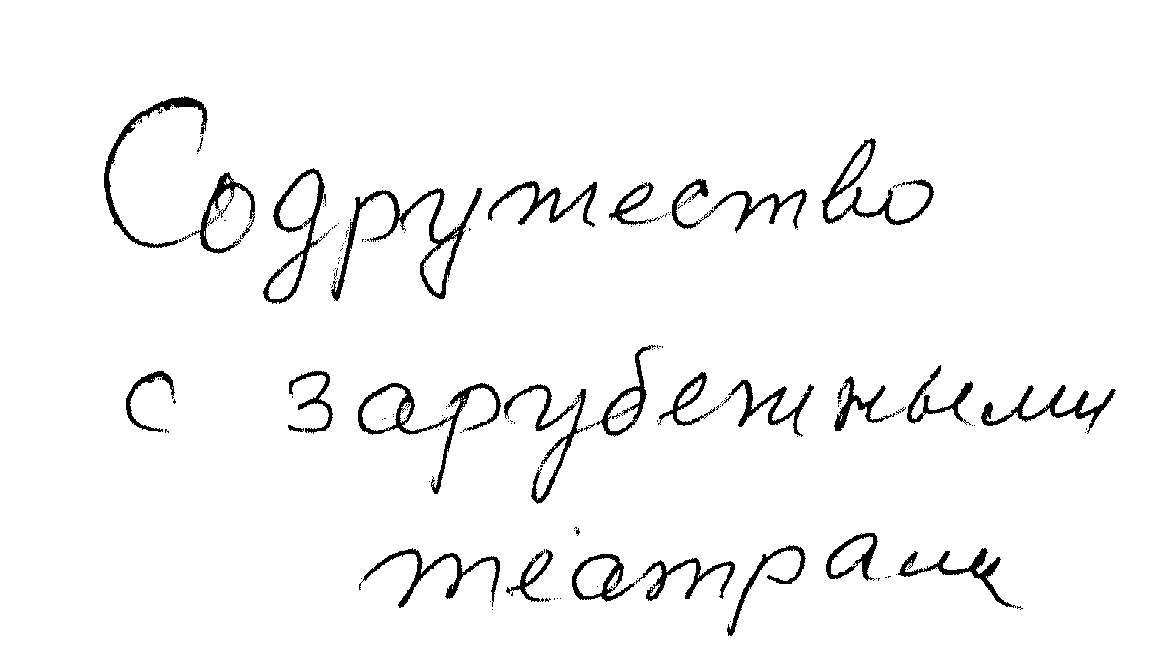 Содружество
с зарубежными
театрами